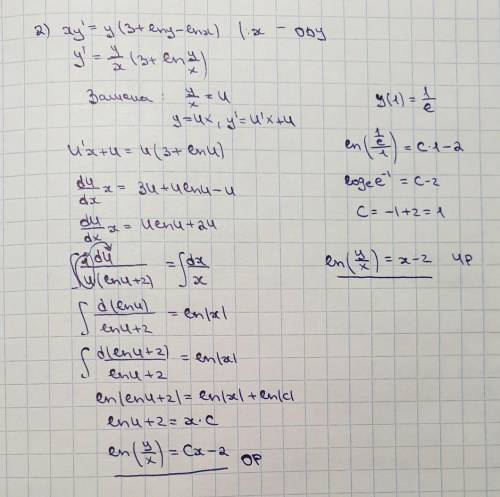 2) xy' = y(3+lny-lnx) |:x - ОДУ
y' = y/x (3+ln y/x)
Замена: y/x = u
y=ux, y'=u'x+u
u'x+u = u(3+lnu)
du/dx x = 3u+ulnu-u
du/dx x = ulnu+2u
∫ 1 du / u(lnu+2) = ∫ dx/x
∫ d(lnu) / lnu+2 = ln|x|
∫ d(lnu+2) / lnu+2 = ln|x|
ln|lnu+2| = ln|x|+ln|c|
lnu+2 = x·C
ln(y/x) = Cx-2 ОР
y(1) = 1/e
ln((1/e)/1) = C·1-2
loge e⁻¹ = C-2
C = -1+2 = 1
ln(y/x) = x-2 ЧР